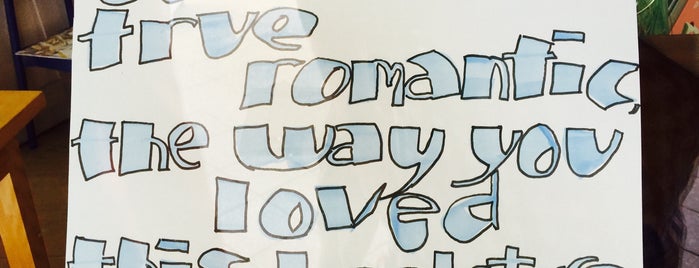 true
romantic,
the way you
loved
this